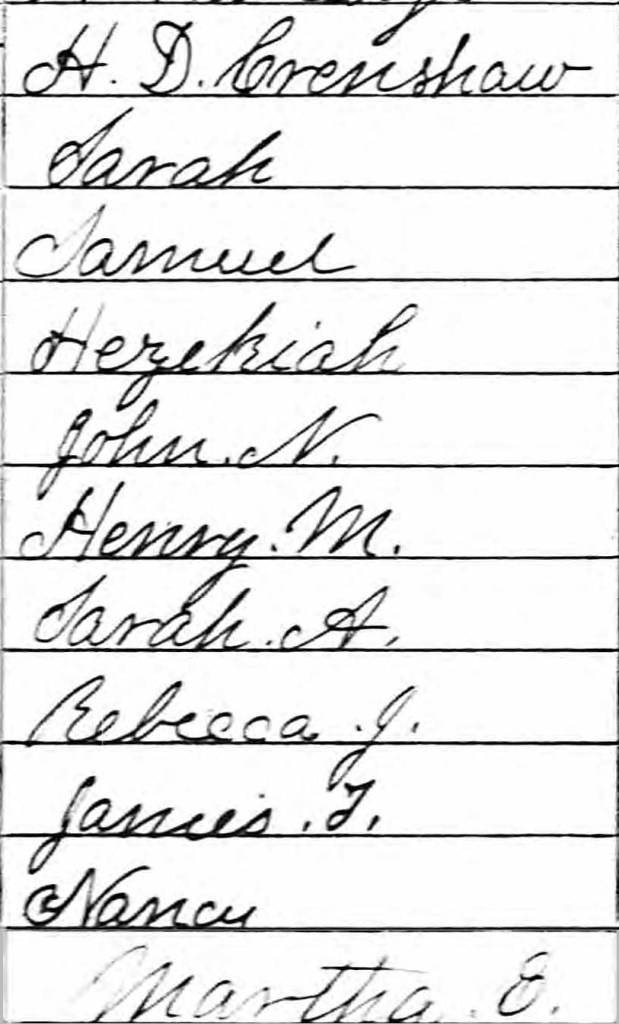 H. D. Crenshaw
Sarah
Samuel
Hezekiah
John. N.
Henry. M.
Sarah. A.
Rebecca. J.
James. T.
Nancy
Martha. E.